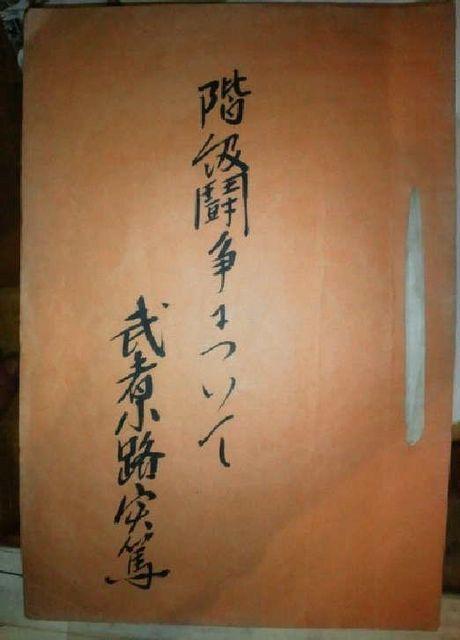 階級鬪争について
武者小路実篤